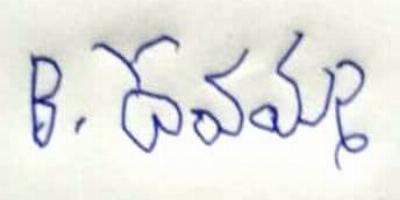 B. దేవమ్మ